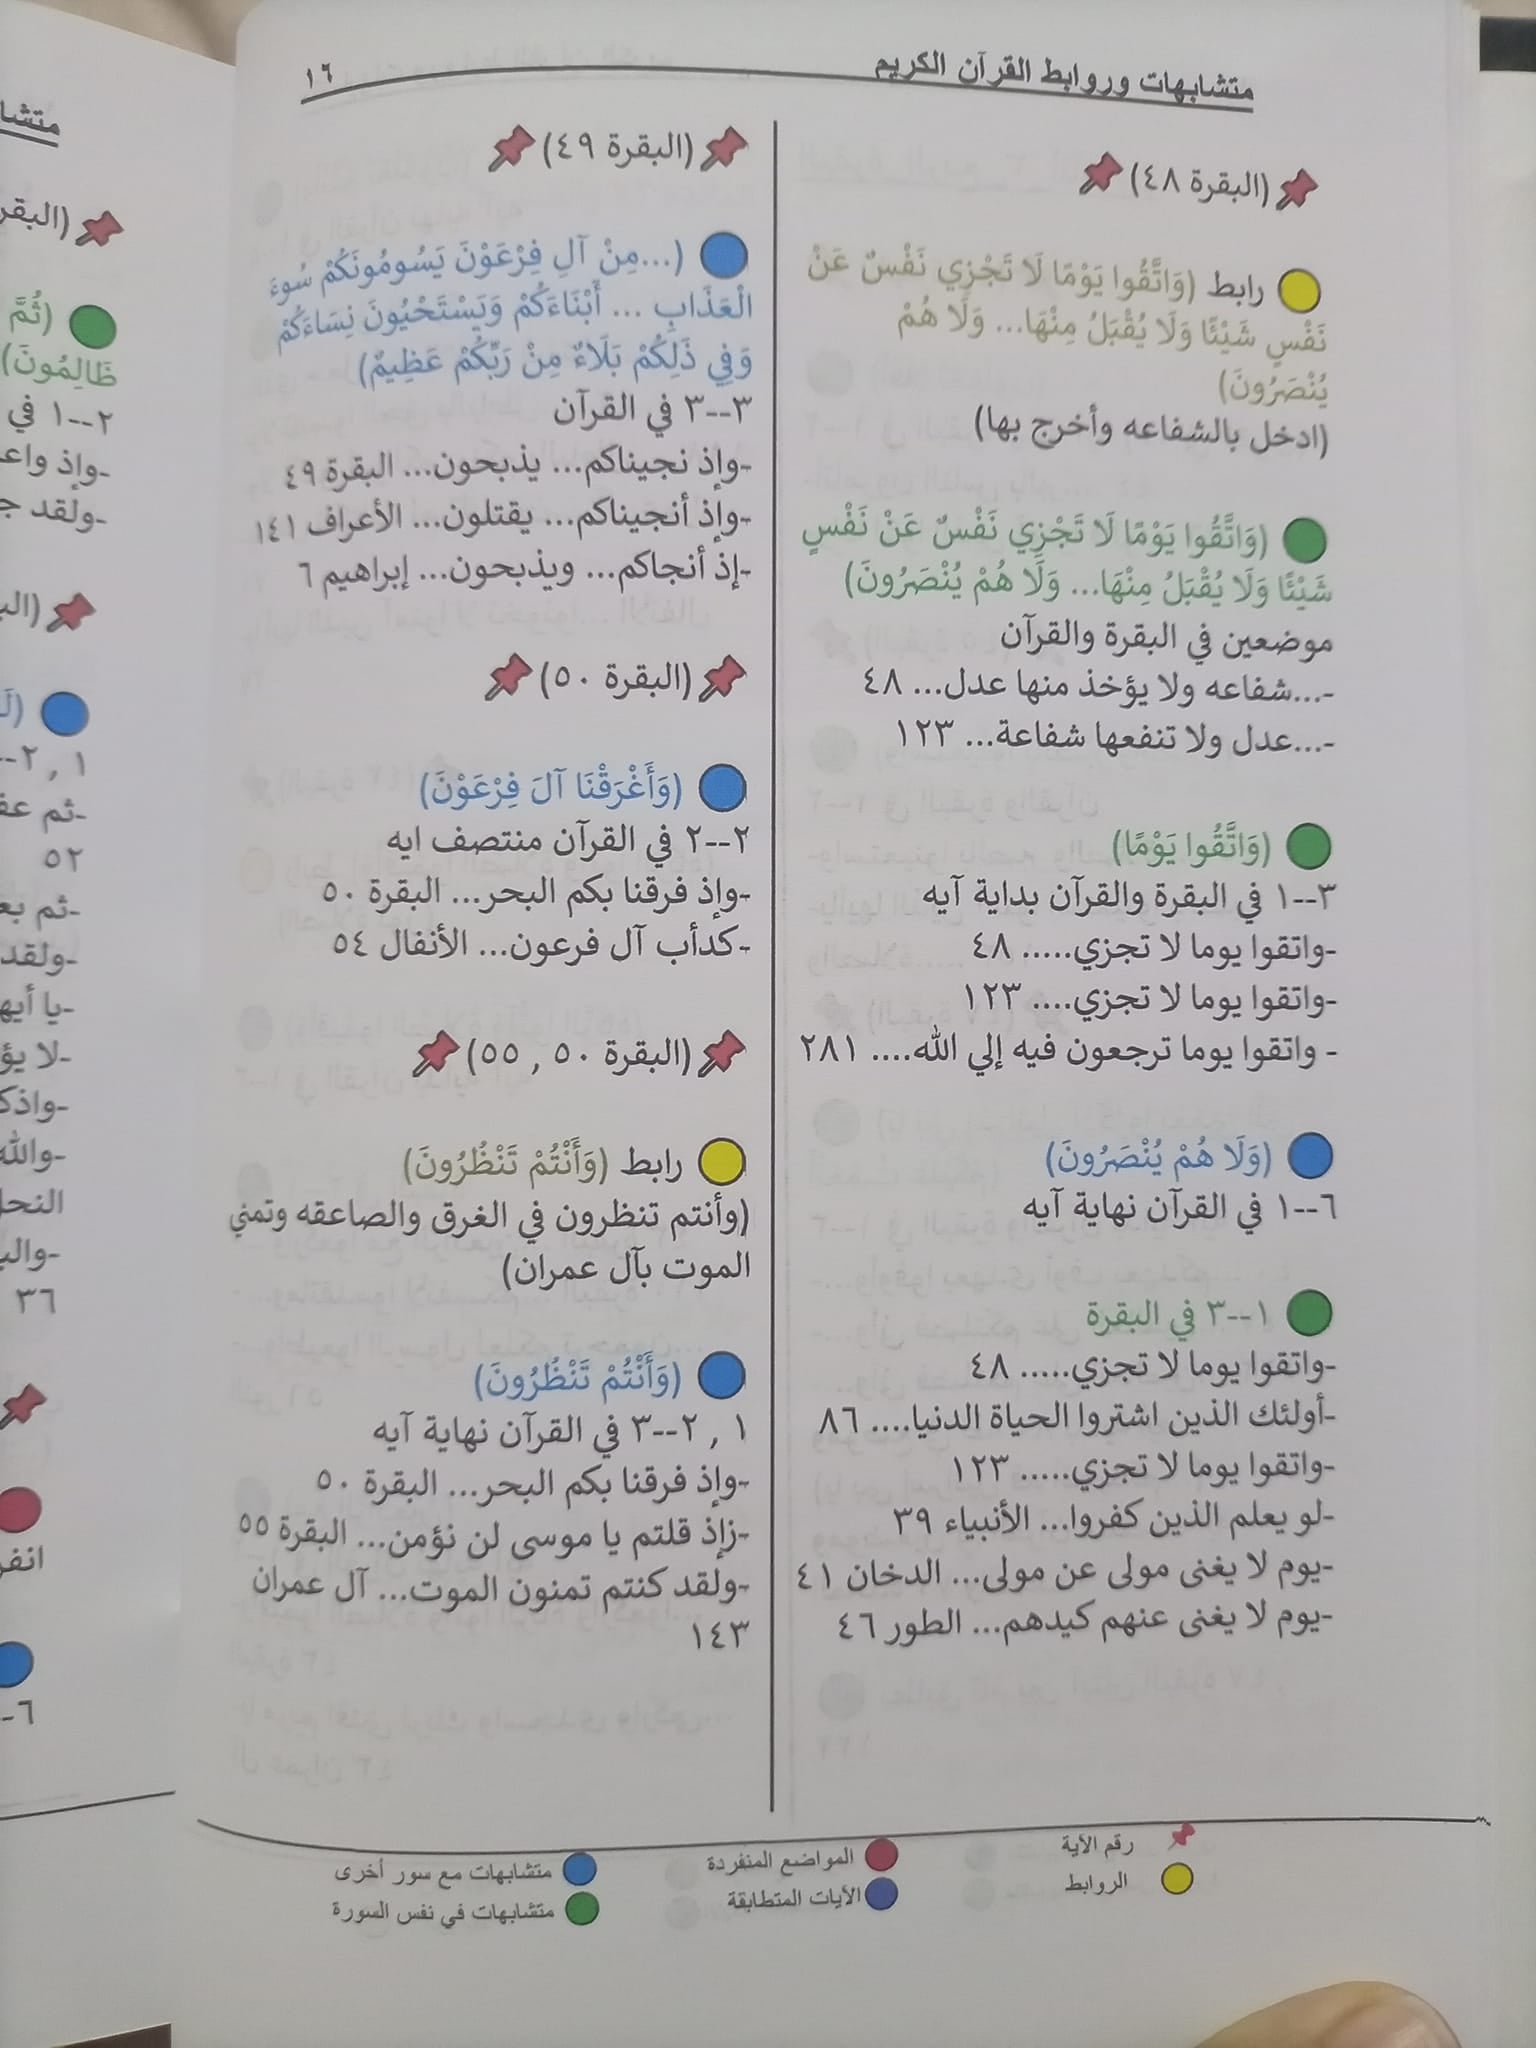 متشابهات وروابط القرآن الكريم
١٦
(البقرة ٤٨)
رابط (وَاتَّقُوا يَوْمًا لَا تَجْزِي نَفْسٌ عَنْ
نَفْسٍ شَيْئًا وَلَا يُقْبَلُ مِنْهَا... وَلَا هُمْ
يُنْصَرُونَ)
(ادخل بالشفاعه وأخرج بها)
(وَاتَّقُوا يَوْمًا لَا تَجْزِي نَفْسٌ عَنْ نَفْسٍ
شَيْئًا وَلَا يُقْبَلُ مِنْهَا... وَلَا هُمْ يُنْصَرُونَ)
موضعين في البقرة والقرآن
-...شفاعه ولا يؤخذ منها عدل... ٤٨
-...عدل ولا تنفعها شفاعة... ١٢٣
(وَاتَّقُوا يَوْمًا)
٣--١ في البقرة والقرآن بداية آيه
-واتقوا يوما لا تجزي..... ٤٨
-واتقوا يوما لا تجزي.... ١٢٣
- واتقوا يوما ترجعون فيه إلي الله.... ٢٨١
(وَلَا هُمْ يُنْصَرُونَ)
٦--١ في القرآن نهاية آيه
١--٣ في البقرة
-واتقوا يوما لا تجزي..... ٤٨
-أولئك الذين اشتروا الحياة الدنيا.... ٨٦
-واتقوا يوما لا تجزي..... ١٢٣
-لو يعلم الذين كفروا... الأنبياء ٣٩
-يوم لا يغنى مولى عن مولى... الدخان ٤١
-يوم لا يغنى عنهم كيدهم... الطور ٤٦
(البقرة ٤٩)
(...مِنْ آلِ فِرْعَوْنَ يَسُومُونَكُمْ سُوءَ
الْعَذَابِ ... أَبْنَاءَكُمْ وَيَسْتَحْيُونَ نِسَاءَكُمْ
وَفِي ذَلِكُمْ بَلَاءٌ مِنْ رَبِّكُمْ عَظِيمٌ)
٣--٣ في القرآن
-وإذ نجيناكم... يذبحون... البقرة ٤٩
-وإذ أنجيناكم... يقتلون... الأعراف ١٤١
-إذ أنجاكم... ويذبحون... إبراهيم ٦
(البقرة ٥٠)
(وَأَغْرَقْنَا آلَ فِرْعَوْنَ)
٢--٢ في القرآن منتصف ايه
-وإذ فرقنا بكم البحر... البقرة ٥٠
-كدأب آل فرعون... الأنفال ٥٤
(البقرة ٥٠ , ٥٥)
رابط (وَأَنْتُمْ تَنْظُرُونَ)
(وأنتم تنظرون في الغرق والصاعقه وتمني
الموت بآل عمران)
(وَأَنْتُمْ تَنْظُرُونَ)
١ , ٢--٣ في القرآن نهاية آيه
-وإذ فرقنا بكم البحر... البقرة ٥٠
-زإذ قلتم يا موسى لن نؤمن... البقرة ٥٥
-ولقد كنتم تمنون الموت... آل عمران
١٤٣
رقم الآية
الروابط
المواضع المنفردة
الآيات المتطابقة
متشابهات مع سور أخرى
متشابهات في نفس السورة
(ثُمَّ
ظَالِمُونَ)
٢--١ في
-ولقد
٥٢
-ولقد
٣٦